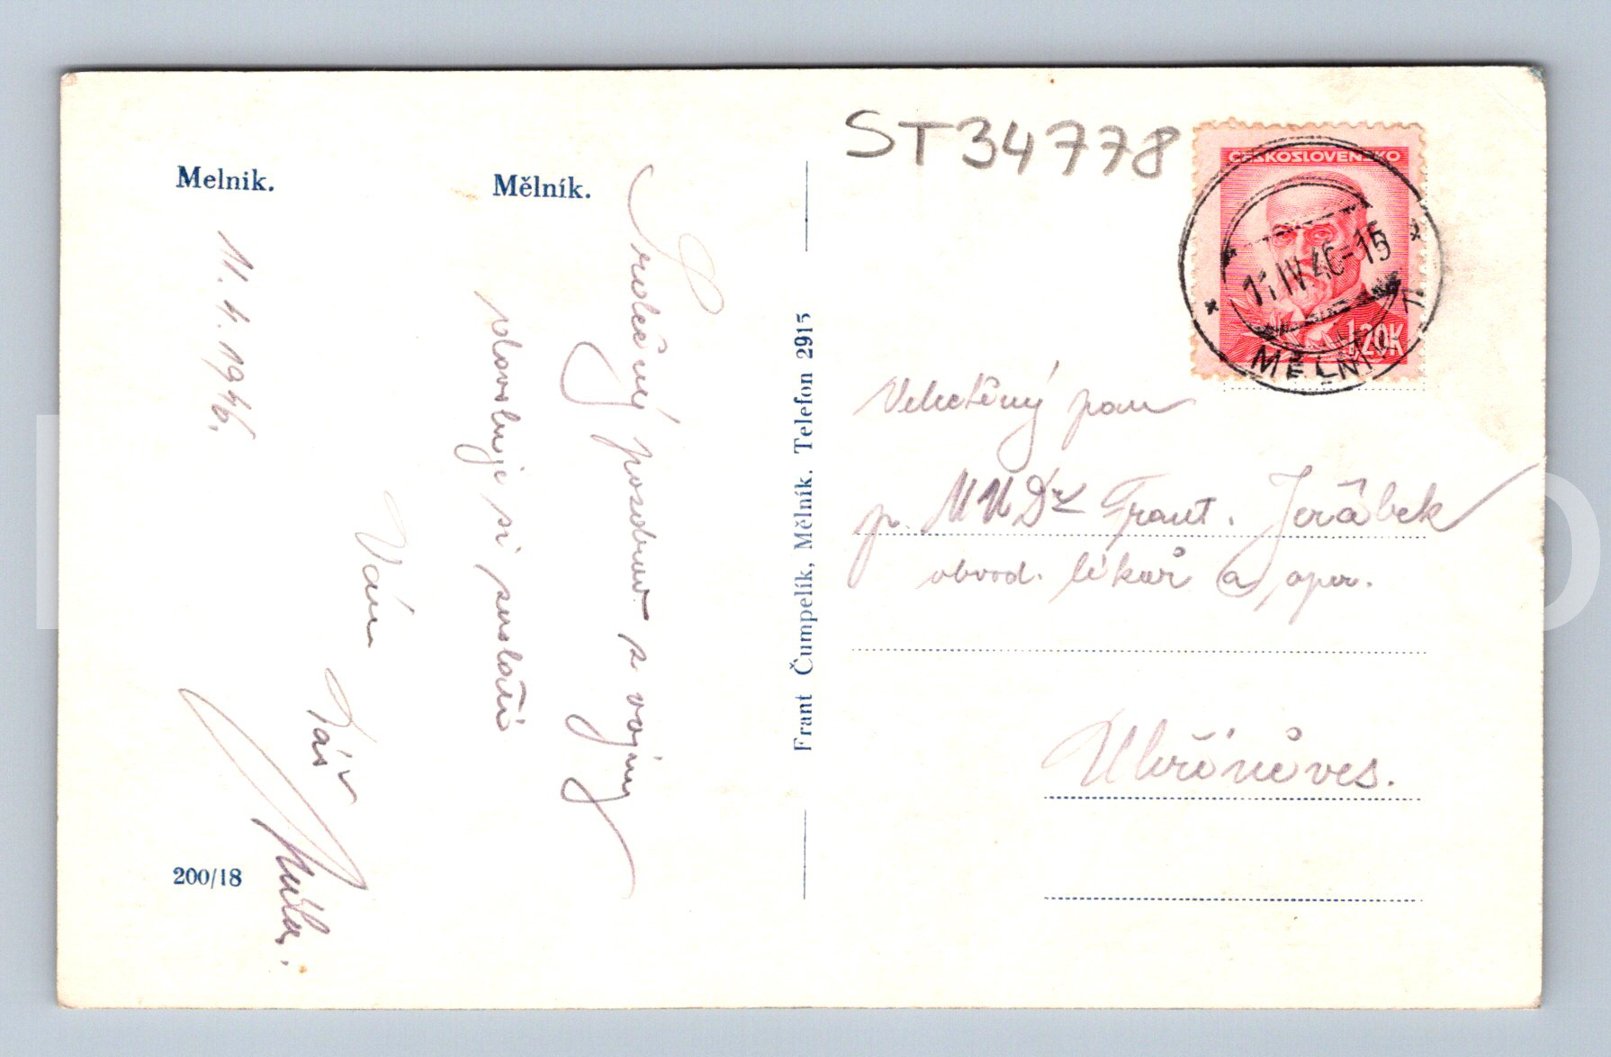 Melnik.
Mělník.
11. 4. 1946.
Srdečný pozdrav z vojny
dovoluje si zaslati
Vám
Váš
ST34778
ČESKOSLOVENSKO
1.20K
11.IV.46-15
MĚLNÍK
Frant Čumpelík, Mělník. Telefon 2915
Velectěný pan
p. MUDr Frant. Jeřábek
obvod. lékař a oper.
Uhříněves.
200/18